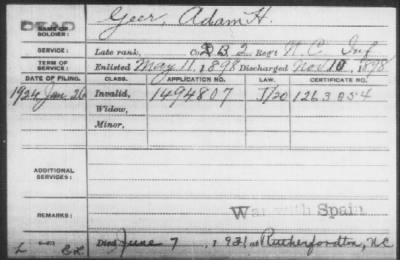 DEAD
NAME OF SOLDIER: Geer, Adam H.
SERVICE: Late rank, Co. B. 2 Reg't N.C. Inf
TERM OF SERVICE: Enlisted May 11, 1898 Discharged Nov 10, 1898
DATE OF FILING. CLASS. APPLICATION NO. LAW. CERTIFICATE NO.
1924 Jan 26 Invalid, 1494807 J/20 1263854
Widow,
Minor,
ADDITIONAL SERVICES:
REMARKS: War with Spain
Died June 7, 1931 at Rutherfordton, NC